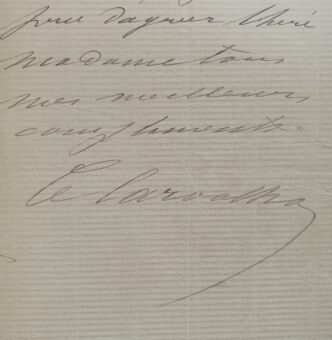 prie d'agréer chère
madame tous
mes meilleurs
compliments.
Carvalho